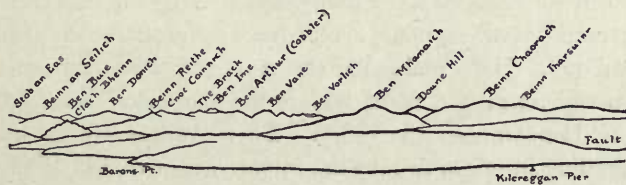 Stob an Eas
Beinn an Seilich
Ben Buie
Clach Bheinn
Ben Donich
Beinn Reithe
Cnoc Coinnich
The Brack
Ben Ime
Ben Arthur (Cobbler)
Ben Vane
Ben Vorlich
Ben Mhanaich
Doune Hill
Beinn Chaorach
Beinn Tharsuinn
Fault
Barons Pt.
Kilcreggan Pier